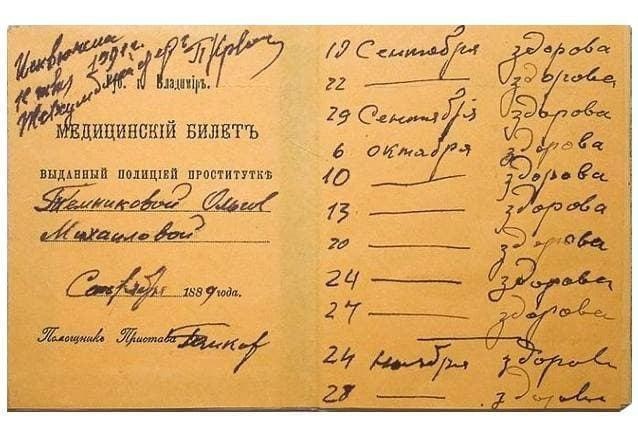 Исключена
1891 г.
Губ. г. Владиміръ.
МЕДИЦИНСКІЙ БИЛЕТЪ
ВЫДАННЫЙ ПОЛИЦІЕЙ ПРОСТИТУТКѢ
Ольгѣ
Михаиловой
Сентября 1889 года.
Помощникъ Пристава
19 Сентября здорова
22 — здорова
29 Сентября здорова
6 октября здорова
10 — здорова
13 — здорова
20 — здорова
24 — здорова
27 — здорова
24 ноября здорова
28 — здорова